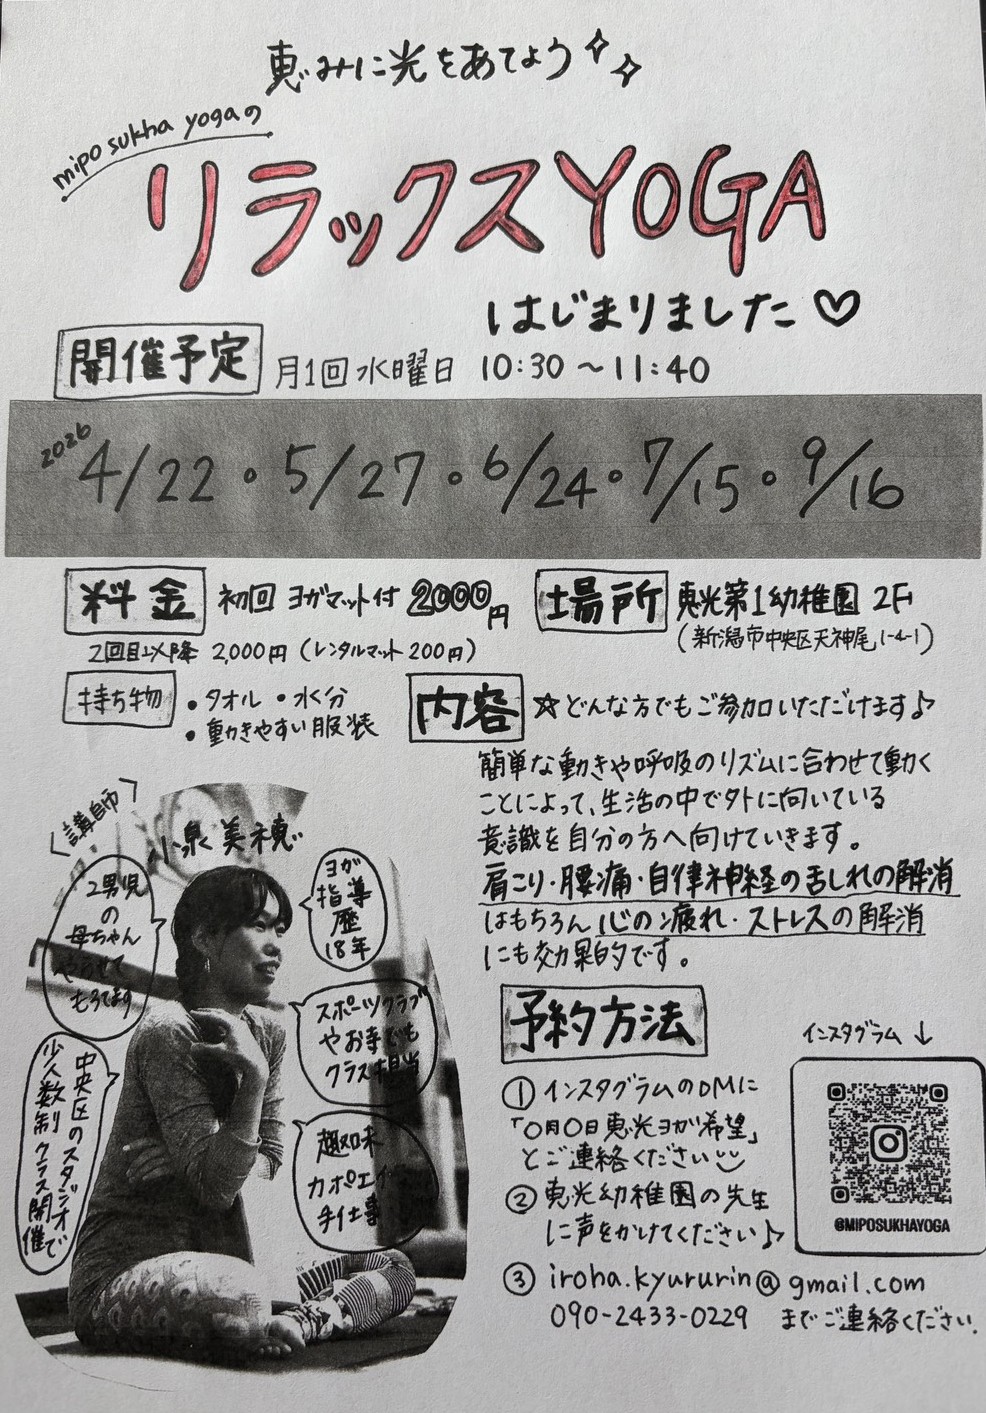 恵みに光をあてよう
mipo sukha yogaの
リラックスYOGA
はじまりました♡
開催予定 月1回 水曜日 10:30〜11:40
2026
4/22・5/27・6/24・7/15・9/16
料金 初回 ヨガマット付 2000円
2回目以降 2,000円(レンタルマット200円)
場所 恵光第1幼稚園 2F
(新潟市中央区天神尾1-4-1)
持ち物 ・タオル ・水分
・動きやすい服装
内容 ☆どんな方でもご参加いただけます♪
簡単な動きや呼吸のリズムに合わせて動く
ことによって、生活の中で外に向いている
意識を自分の方へ向けていきます。
肩こり・腰痛・自律神経の乱れの解消
はもちろん 心の疲れ・ストレスの解消
にも効果的です。
〈講師〉
小泉美穂
2男児
の
母ちゃん
やらせて
もろてます
ヨガ
指導
歴
18年
スポーツクラブ
やお寺でも
クラス担当
趣味
カポエイラ
手仕事
中央区のスタジオで
少人数制クラス開催
予約方法
① インスタグラムのDMに
「○月○日恵光ヨガ希望」
とご連絡ください
② 恵光幼稚園の先生
に声をかけてください♪
③ iroha.kyururin@gmail.com
090-2433-0229 までご連絡ください.
インスタグラム ↓
@MIPOSUKHAYOGA